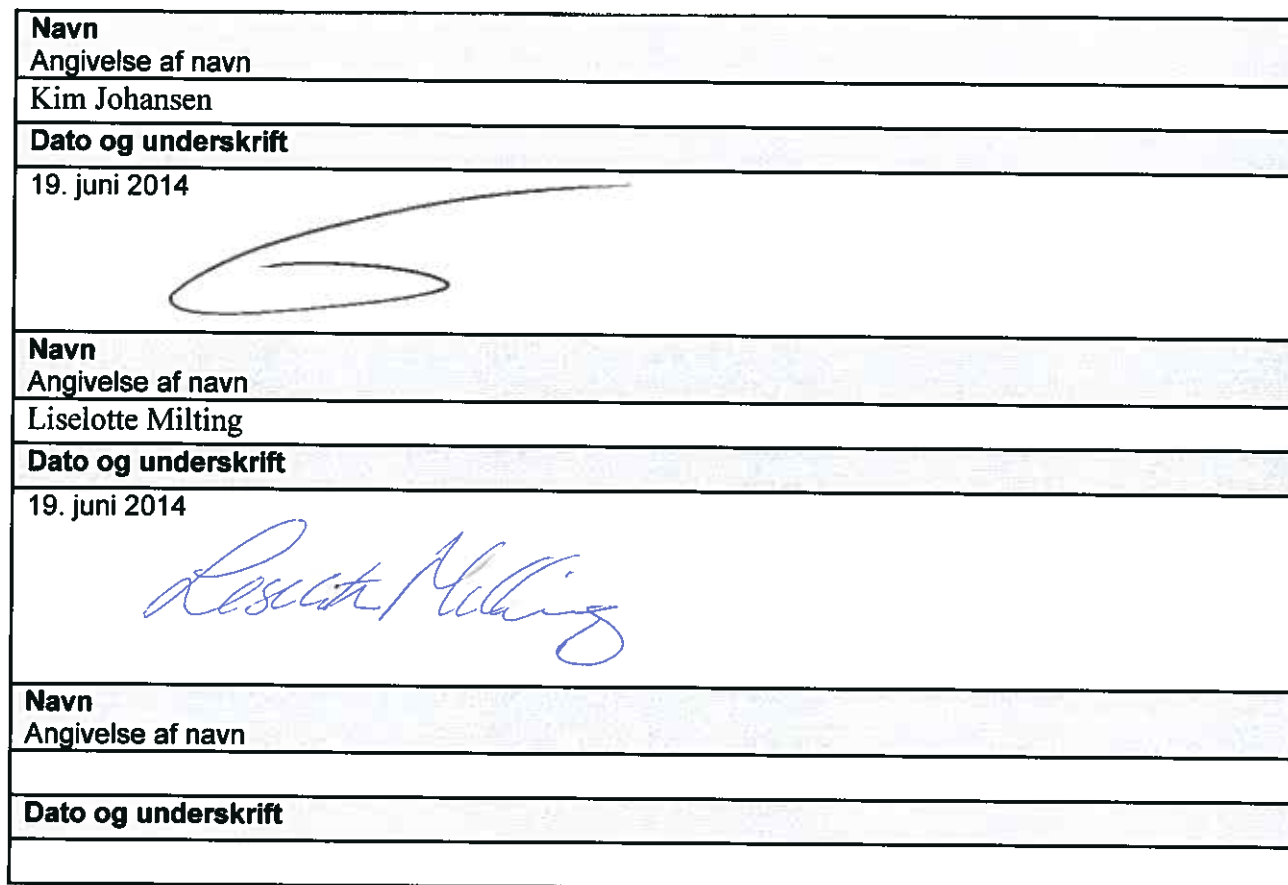 Navn
Angivelse af navn
Kim Johansen
Dato og underskrift
19. juni 2014
Navn
Angivelse af navn
Liselotte Milting
Dato og underskrift
19. juni 2014
Navn
Angivelse af navn
Dato og underskrift